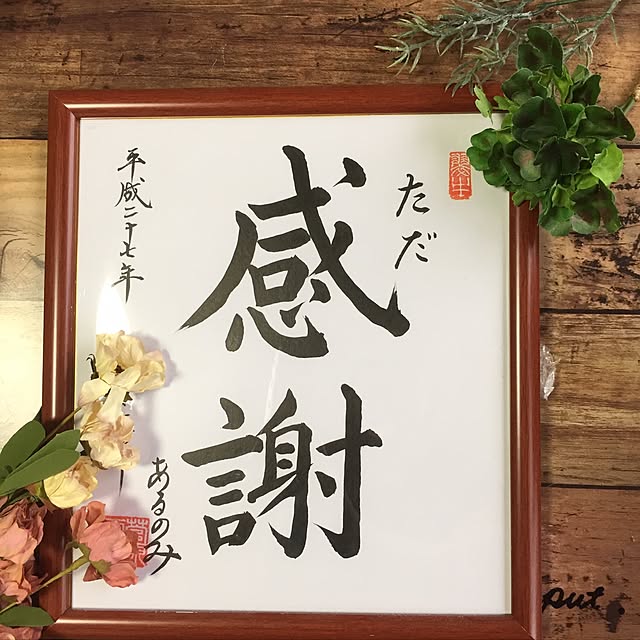 ただ
感謝
あるのみ
平成二十七年
put